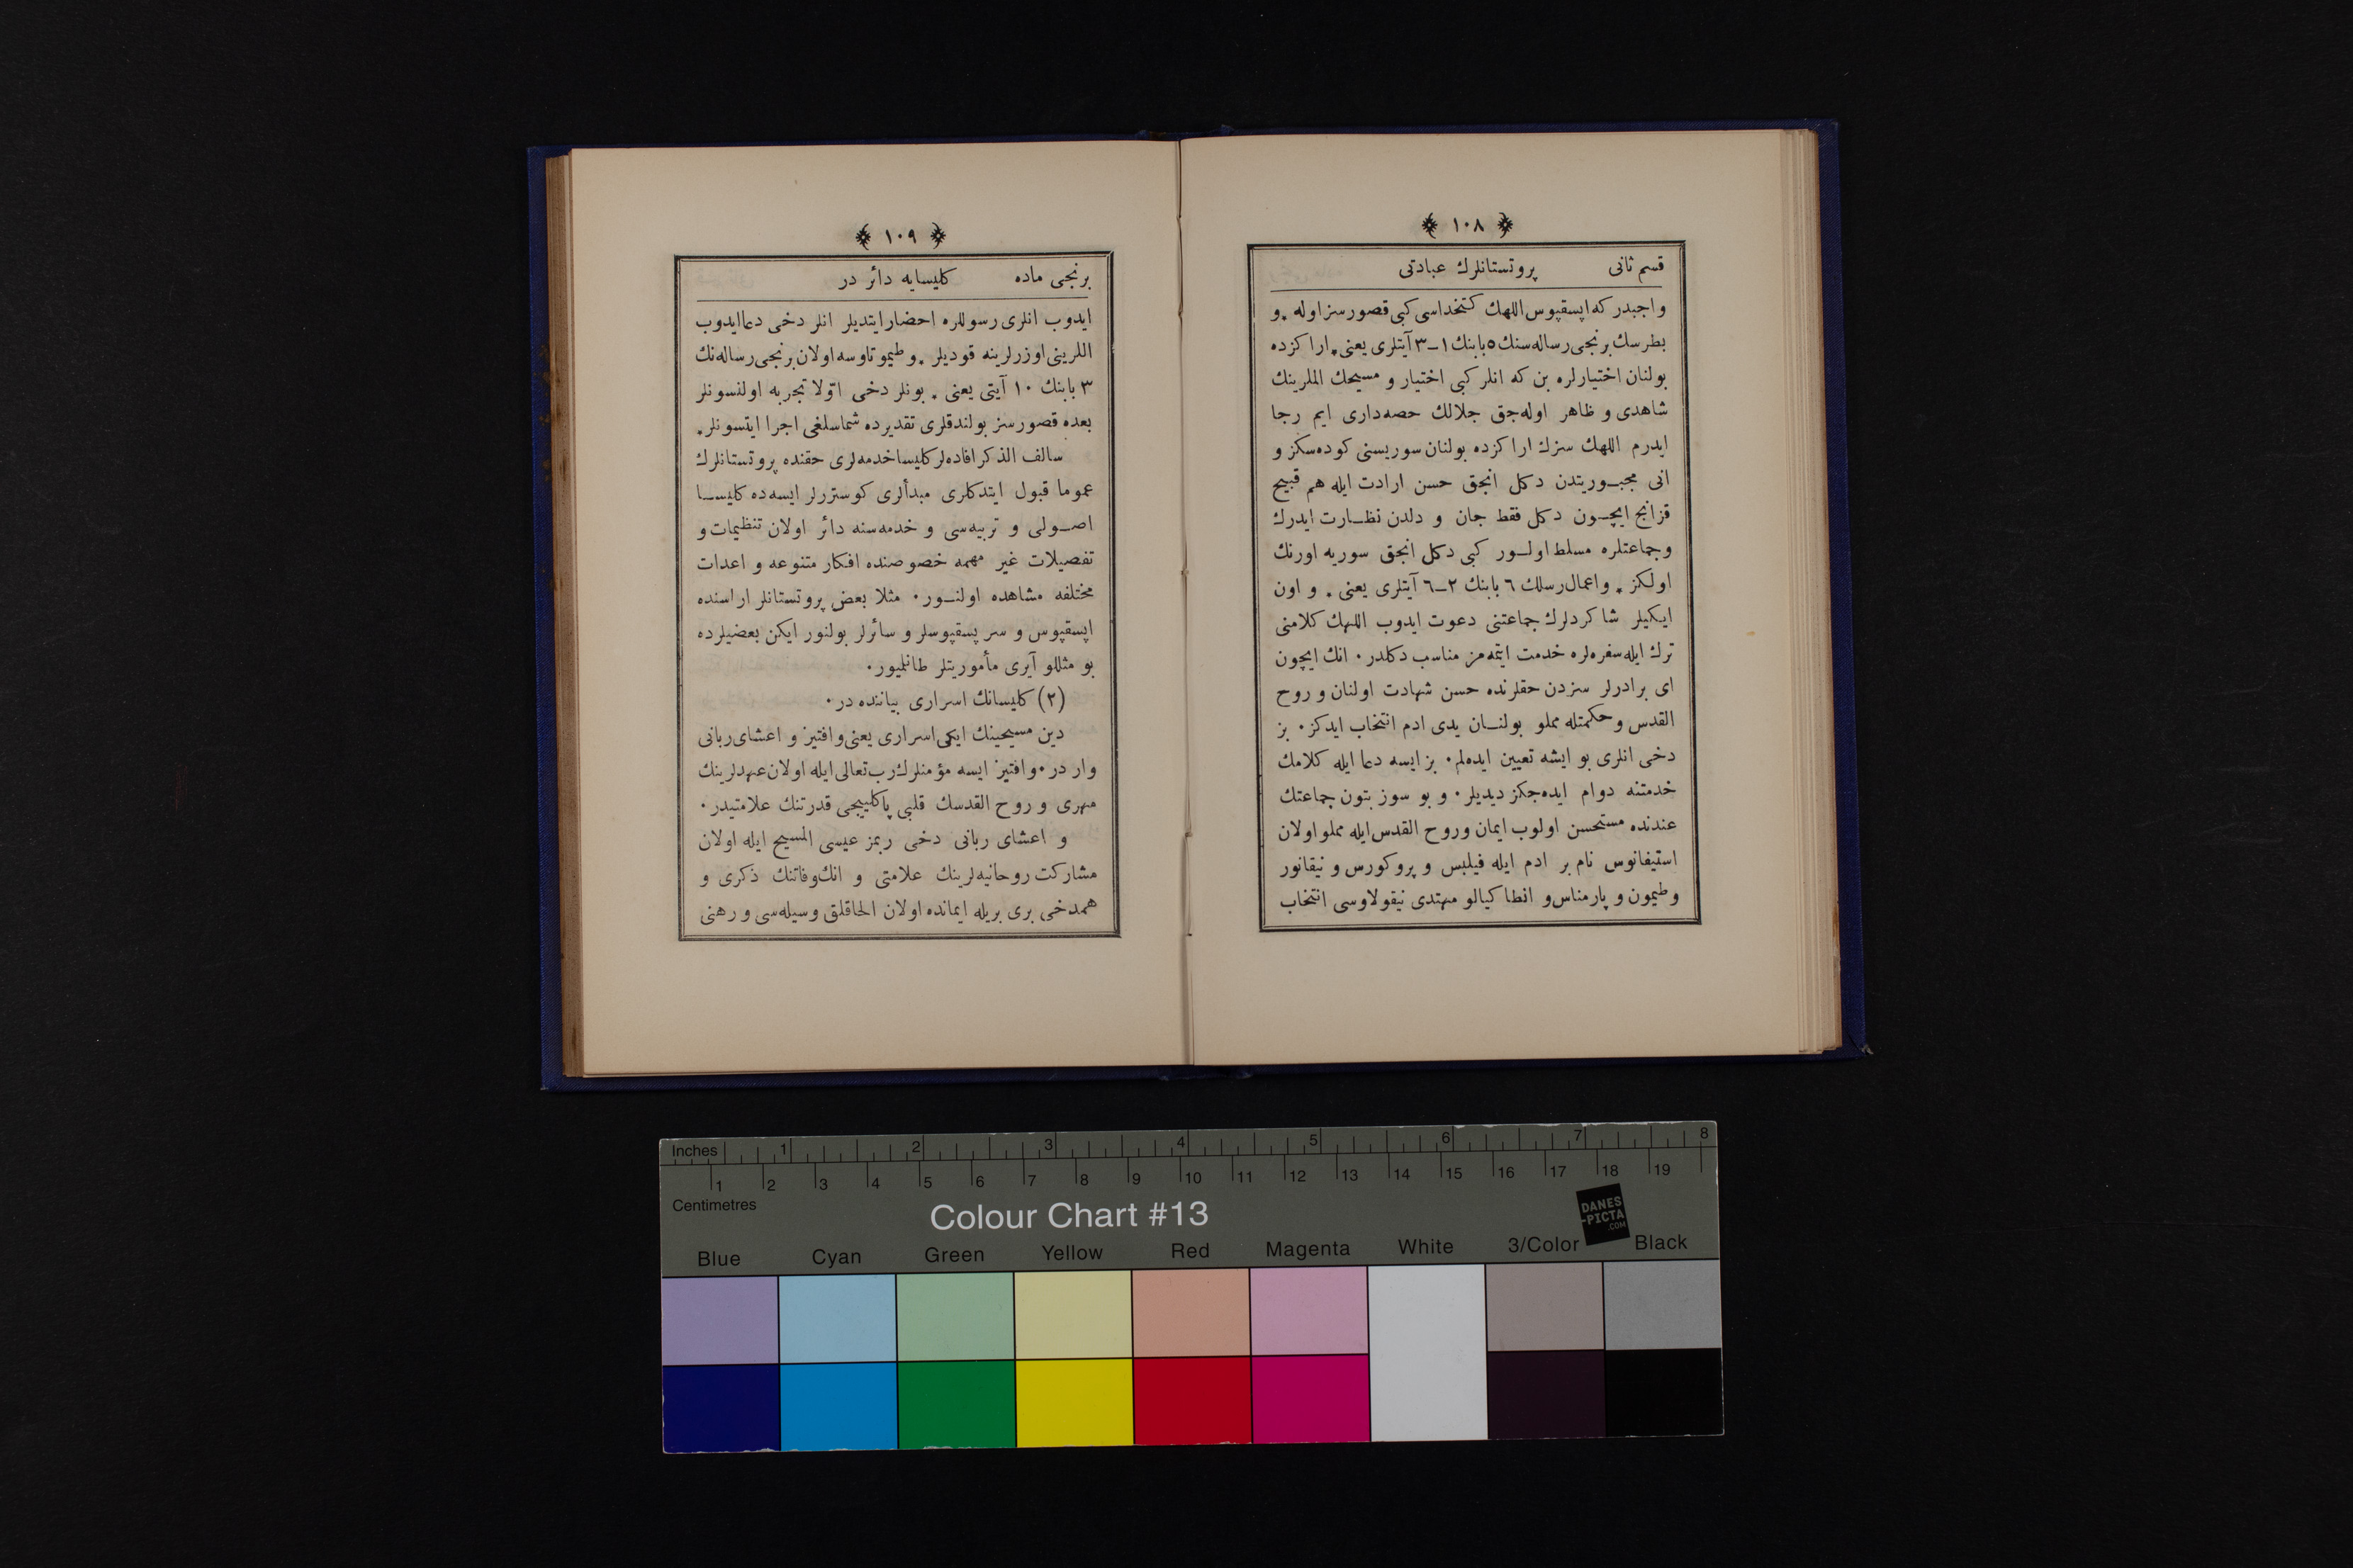 ﴿ ١٠٨ ﴾
قسم ثانی پروتستانلرك عبادتی
واجبدر كه اپسقپوس اللهك كتخداسی كبی قصورسز اوله ٭ و
بطرسك برنجی رساله سنك ٥ بابنك ١ــ٣ آیتلری یعنی ٭ اراكزده
بولنان اختیارلره بن كه انلر كبی اختیار و مسیحك المارینك
شاهدی و ظاهر اوله جق جلالك حصه داری ایم رجا
ایدرم اللهك سزك اراكزده بولنان سوریسنی كوده سكز و
انی مجبـوریتدن دكل انجق حسن ارادت ایله هم قبیح
قزانج ایچـون دكل فقط جان و دلدن نظـارت ایدرك
وجماعتلره مسلط اولـور كبی دكل انجق سوریه اورنك
اولكز ٭ واعمال رسلك ٦ بابنك ٢ــ٦ آیتلری یعنی ٭ و اون
ایكیلر شاكردلرك جماعتنی دعوت ایدوب اللهك كلامنی
ترك ایله سفره لره خدمت ایتمه مز مناسب دكلدر ٠ انك ایچون
ای برادرلر سزدن حقلرنده حسن شهادت اولنان و روح
القدس و حكمتله مملو بولنـان یدی ادم انتخاب ایدكز ٠ بز
دخی انلری بو ایشه تعیین ایده لم ٠ بز ایسه دعا ایله كلامك
خدمتنه دوام ایده جكز دیدیلر ٠ و بو سوز بتون جماعتك
عندنده مستحسن اولوب ایمان وروح القدس ایله مملو اولان
استیفانوس نام بر ادم ایله فیلبس و پروكورس و نیقانور
وطیمون و پارمناس و انطاكیالو مهتدی نیقولاوسی انتخاب
﴿ ١٠٩ ﴾
برنجی ماده كلیسایه دائر در
ایدوب انلری رسوللره احضار ایتدیلر انلر دخی دعا ایدوب
اللرینی اوزرلرینه قودیلر ٭ و طیموتاوسه اولان برنجی رساله نك
٣ بابنك ١٠ آیتی یعنی ٭ بونلر دخی اوّلا تجربه اولنسونلر
بعده قصورسز بولندقلری تقدیرده شماسلغی اجرا ایتسونلر ٭
سالف الذكر افاده لر كلیسا خدمه لری حقنده پروتستانلرك
عموما قبول ایتدكلری مبدألری كوسترلر ایسه ده كلیسـا
اصـولی و تربیه سی و خدمه سنه دائر اولان تنظیمات و
تفصیلات غیر مهمه خصوصنده افكار متنوعه و اعدات
مختلفه مشاهده اولنـور ٠ مثلا بعض پروتستانلر اراسنده
اپسقپوس و سر پسقپوسلر و سائرلر بولنور ایكن بعضیلرده
بو مثللو آیری مأموریتلر طانلمیور ٠
(٢) كلیسانك اسراری بیاننده در ٠
دین مسیحینك ایكی اسراری یعنی وافتیز و اعشای ربانی
وار در ٠ وافتیز ایسه مؤمنلرك رب تعالی ایله اولان عهدلرینك
مهری و روح القدسك قلبی پاكلییجی قدرتنك علامتیدر ٠
و اعشای ربانی دخی ربمز عیسی المسیح ایله اولان
مشاركت روحانیه لرینك علامتی و انك وفاتنك ذكری و
همدخی بری بریله ایمانده اولان الحاقلق وسیله سی و رهنی
Inches 1 2 3 4 5 6 7 8
1 2 3 4 5 6 7 8 9 10 11 12 13 14 15 16 17 18 19
Centimetres
Colour Chart #13
DANES
-PICTA
.COM
Blue Cyan Green Yellow Red Magenta White 3/Color Black